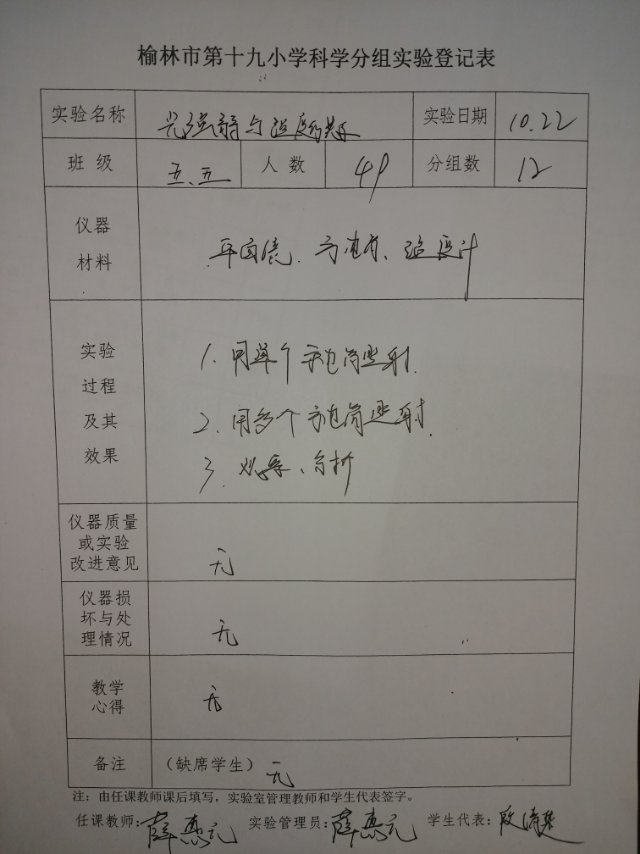 榆林市第十九小学科学分组实验登记表
实验名称 光强弱与温度的关系 实验日期 10.22
班 级 五.五 人 数 49 分组数 12
仪器
材料
平面镜、手电筒、温度计
实验
过程
及其
效果
1. 用单个手电筒照射.
2. 用多个手电筒照射.
3. 观察、分析
仪器质量
或实验
改进意见
无
仪器损
坏与处
理情况
无
教学
心得
无
备注 （缺席学生） 无
注：由任课教师课后填写，实验室管理教师和学生代表签字。
任课教师：薛 元 实验管理员：薛 元 学生代表：段